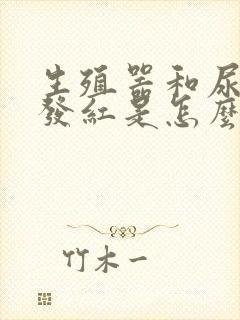 生殖器和尿
發紅是怎麼
竹木一